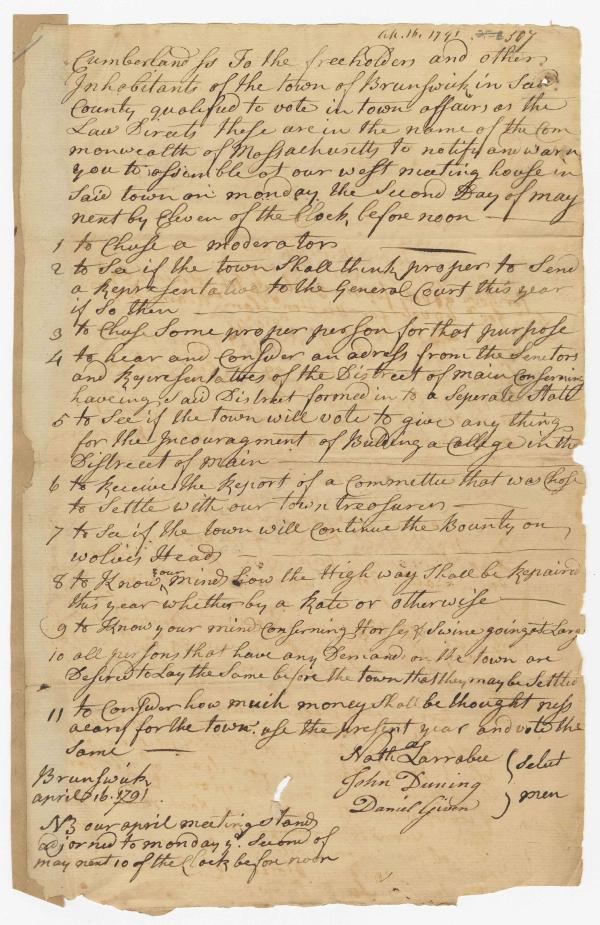 Ap. 16. 1791 507
Cumberland Ss To the freeholders and other
Inhabitants of the town of Brunswick in Said
County qualifud to vote in town affairs as the
Law Directs these are in the name of the Com
monwealth of Massachusetts to notify and warn
you to assemble at our west meeting house in
Said town on monday the Second Day of may
next by Eleven of the Clock before noon
1 to Chuse a moderator
2 to See if the town Shall think proper to Send
a Representative to the General Court this year
if So then
3 to Chuse Some proper person for that purpose
4 to hear and Consider an adress from the Senetors
and Representatives of the Distreet of main Conserning
haveing Said Distreet formed in to a Seperate State
5 to See if the town will vote to give any thing
for the Incouragment of Bulding a College in the
Distreect of main
6 to Receive the Report of a Committie that was Chose
to Settle with our town treasurer
7 to See if the town will Continue the Bounty on
wolves Heads
8 to Know your mind how the High way Shall be Repaired
this year whether by a Rate or otherwise
9 to Know your mind Conserning Horses & Swine going at Large
10 all persons that have any Demands on the town are
Desired to Lay the Same before the town that they may be Settled
11 to Consider how much money Shall be thought ness
acary for the town use the present year and vote the
Same
Nath.l Larrabee
John Duning
Daniel Given
Select
men
Brunswick
april 16. 1791
NB our april meeting stands
adjorned to monday ye Second of
may next 10 of the Clock before noon